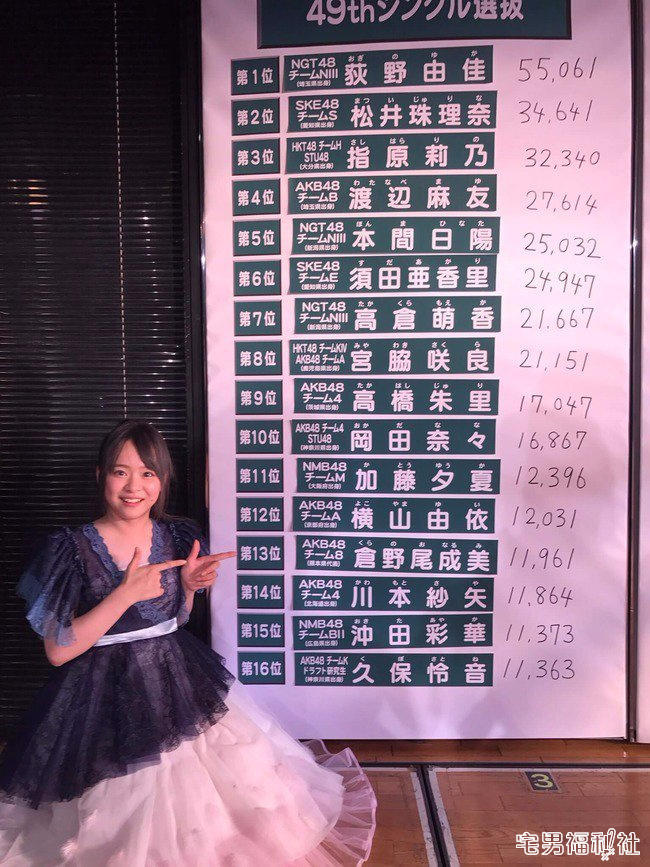 49thシングル選抜
第1位 NGT48 チームNIII (埼玉県出身) おぎのゆか 荻野由佳 55,061
第2位 SKE48 チームS (愛知県出身) まついじゅりな 松井珠理奈 34,641
第3位 HKT48 チームH STU48 (大分県出身) さしはらりの 指原莉乃 32,340
第4位 AKB48 チームB (埼玉県出身) わたなべまゆ 渡辺麻友 27,614
第5位 NGT48 チームNIII (新潟県出身) ほんまひなた 本間日陽 25,032
第6位 SKE48 チームE (愛知県出身) すだあかり 須田亜香里 24,947
第7位 NGT48 チームNIII (新潟県出身) たかくらもえか 高倉萌香 21,667
第8位 HKT48 チームKIV AKB48 チームA (鹿児島県出身) みやわきさくら 宮脇咲良 21,151
第9位 AKB48 チーム4 (茨城県出身) たかはしじゅり 高橋朱里 17,047
第10位 AKB48 チーム4 STU48 (神奈川県出身) おかだなな 岡田奈々 16,867
第11位 NMB48 チームM (大阪府出身) かとうゆうか 加藤夕夏 12,396
第12位 AKB48 チームA (京都府出身) よこやまゆい 横山由依 12,031
第13位 AKB48 チーム8 (熊本県代表) くらのおなるみ 倉野尾成美 11,961
第14位 AKB48 チーム4 (北海道出身) かわもとさや 川本紗矢 11,864
第15位 NMB48 チームBII (広島県出身) おきたあやか 沖田彩華 11,373
第16位 AKB48 チームK ドラフト研究生 (神奈川県出身) くぼさとね 久保怜音 11,363
3
宅男福利社